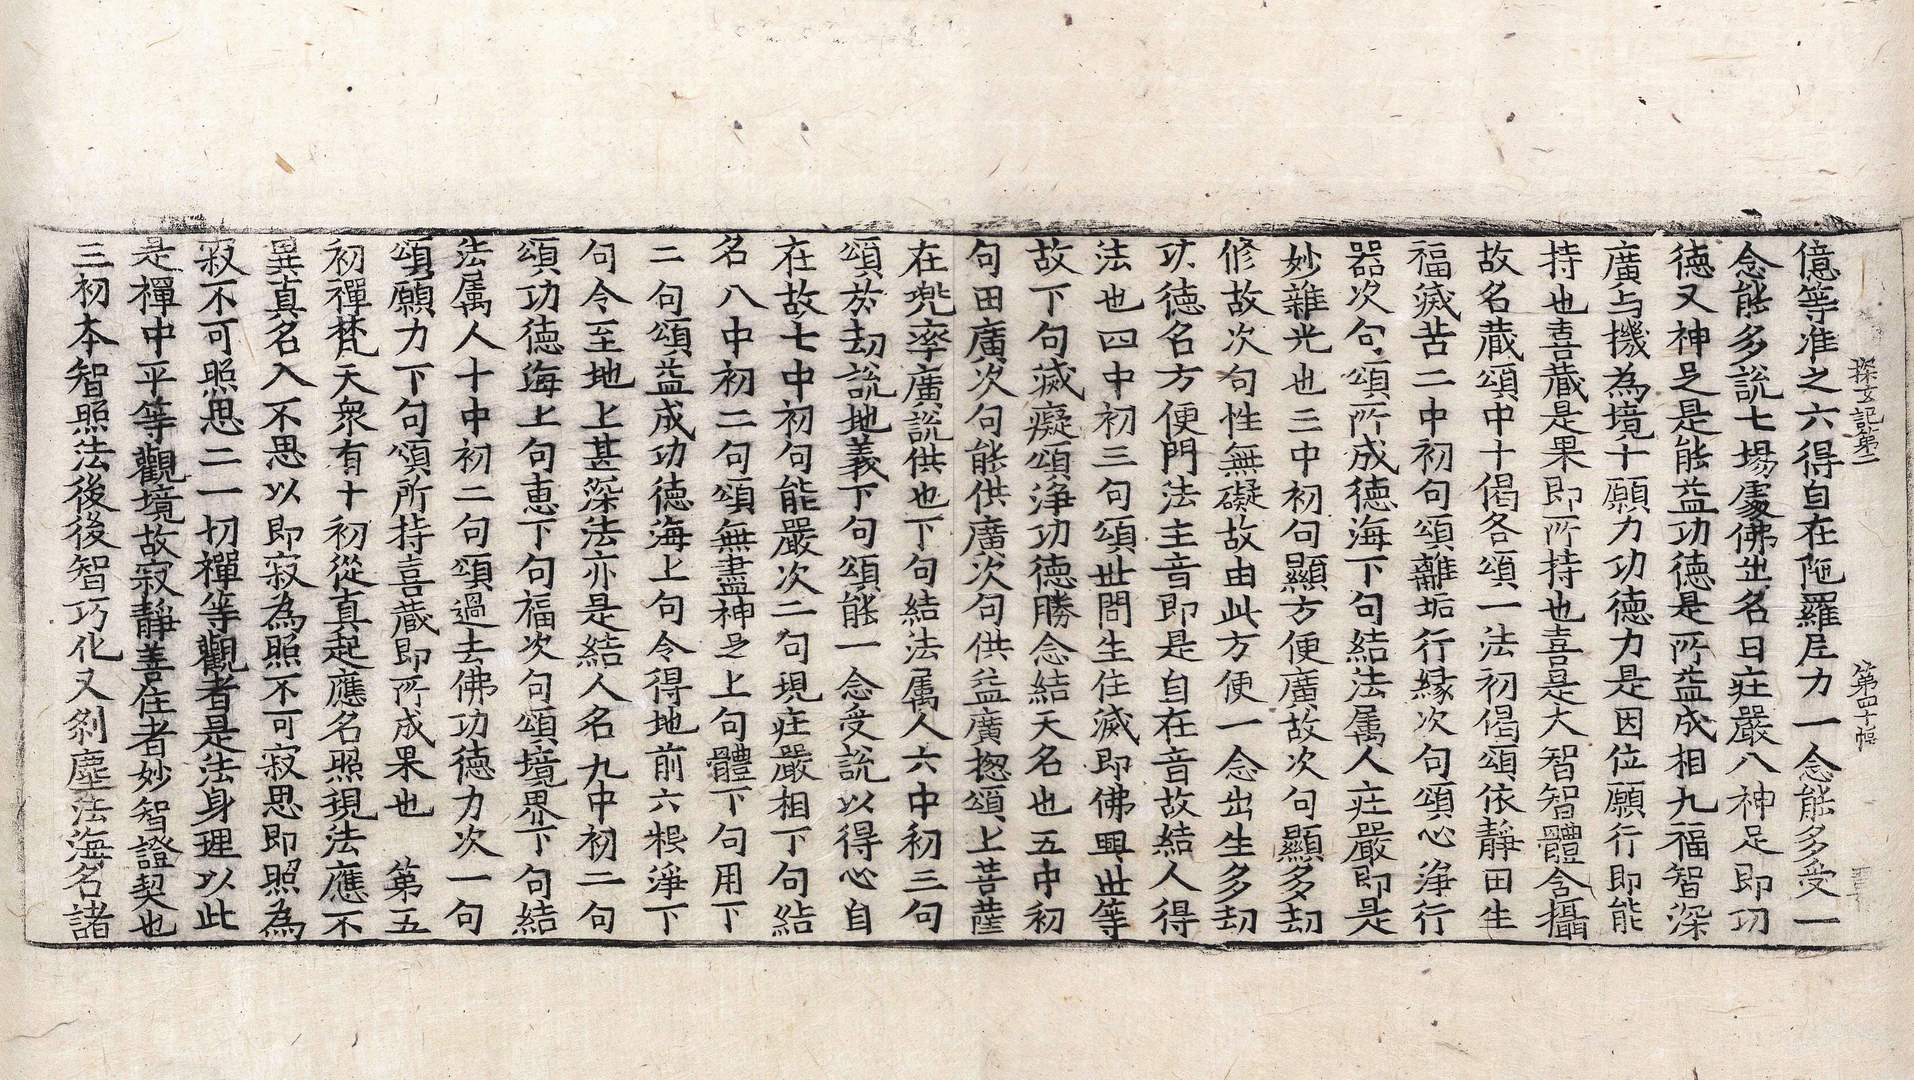 探玄記第二 第四十幅
億等准之六得自在陁羅尼力一念能多受一
念能多說七場處佛出名曰庄嚴八神足即功
徳又神足是能益功徳是所益成相九福智深
廣与機為境十願力功徳力是因位願行即能
持也喜蔵是果即所持也喜是大智智體含攝
故名蔵頌中十偈各頌一法初偈頌依靜田生
福滅苦二中初句頌離垢行縁次句頌心淨行
器次句頌所成徳海下句結法属人庄嚴即是
妙雜光也三中初句顯方便廣故次句顯多劫
修故次句性無礙故由此方便一念出生多劫
功徳名方便門法主音即是自在音故結人得
法也四中初三句頌世間生住滅即佛興世等
故下句滅癡頌淨功徳勝念結天名也五中初
句田廣次句能供廣次句供益廣揔頌上菩薩
在兠率廣說供也下句結法属人六中初三句
頌於劫說地義下句頌能一念受說以得心自
在故七中初句能嚴次二句現庄嚴相下句結
名八中初二句頌無盡神足上句體下句用下
二句頌益成功徳海上句令得地前六根淨下
句令至地上甚深法亦是結人名九中初二句
頌功徳海上句恵下句福次句頌境界下句結
法属人十中初二句頌過去佛功徳力次一句
頌願力下句頌所持喜蔵即所成果也 第五
初禪梵天衆有十初從真起應名照現法應不
異真名入不思以即寂為照不可寂思即照為
寂不可照思二一切禪等觀者是法身理以此
是禪中平等觀境故寂靜善住者妙智證契也
三初本智照法後後智巧化又剎塵法海名諸